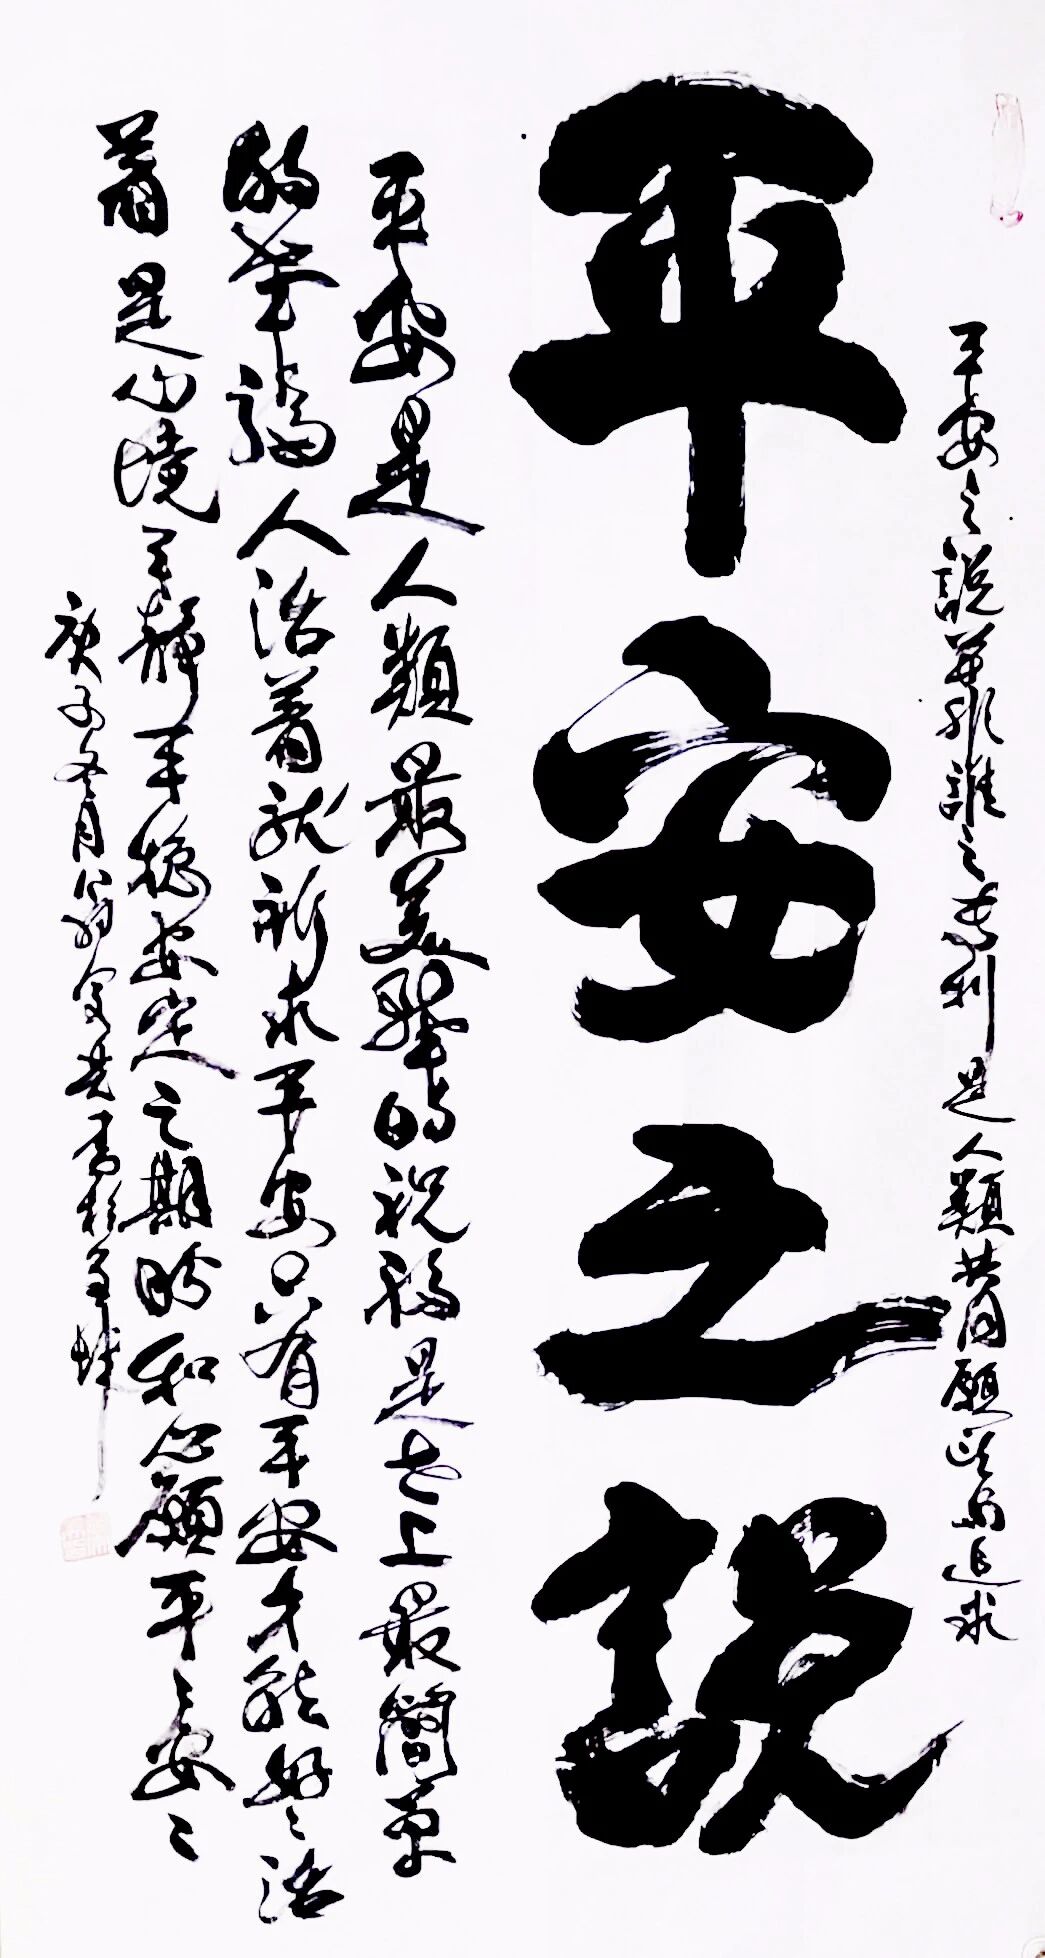 平安之說並非誰之專利是人類共同願望與追求
平安之說
平安是人類最美的祝福是世上最簡單
的幸福人活着就祈求平安只有平安才能好々活
着是心境平靜平穩安定之期盼和心願平々安々
庚子冬月